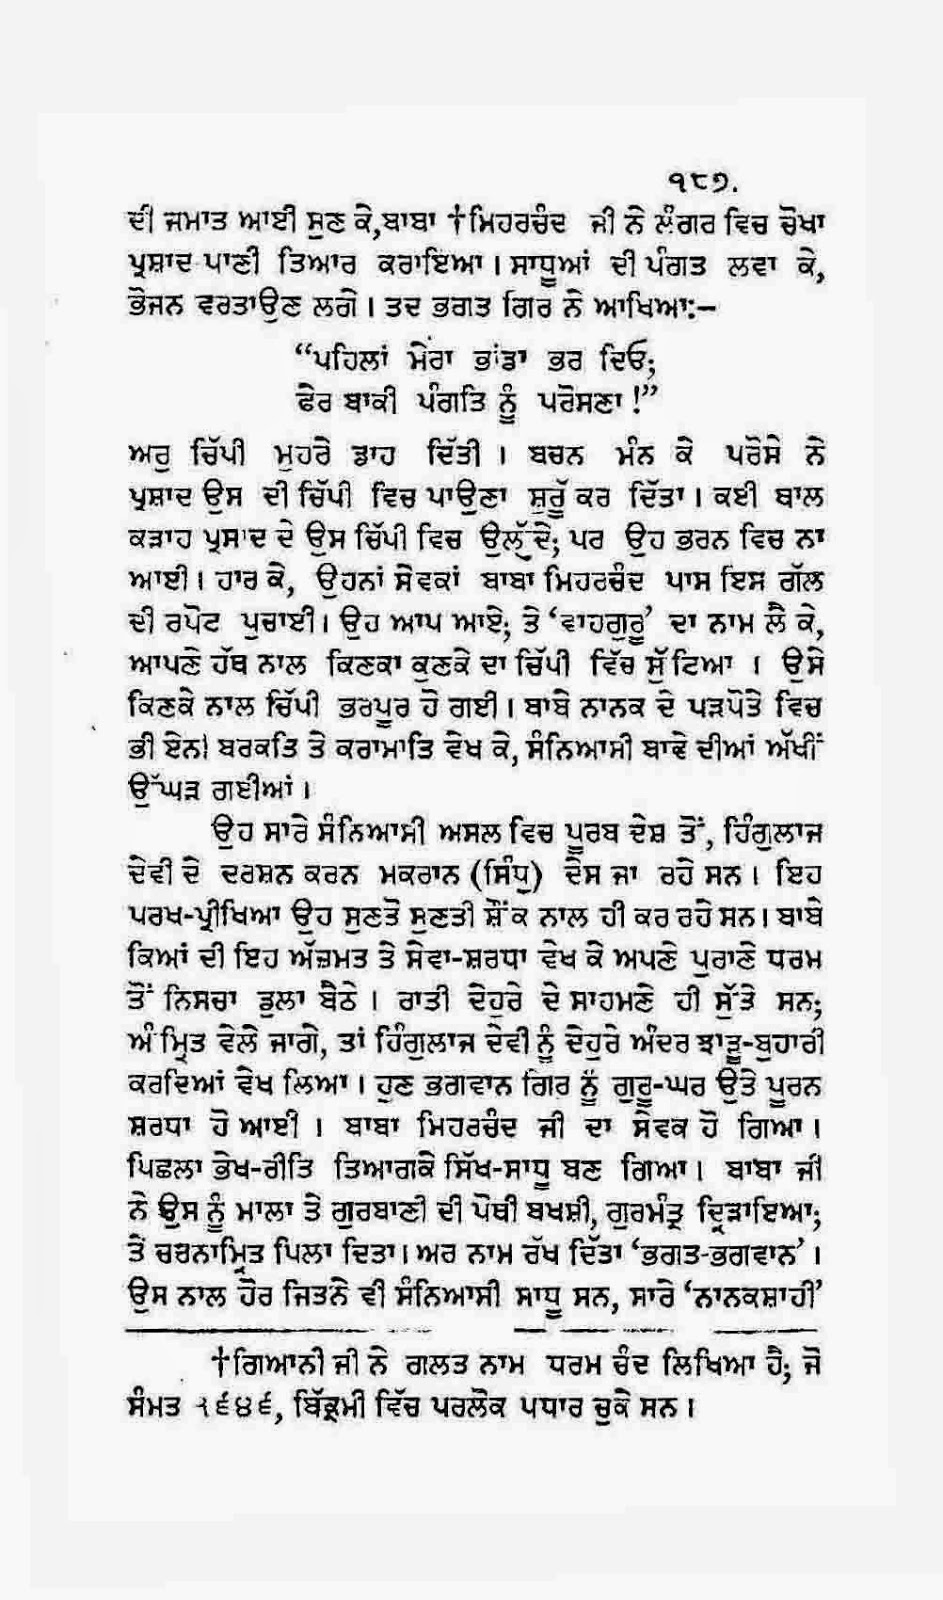 ੧੮੭.
ਦੀ ਜਮਾਤ ਆਈ ਸੁਣ ਕੇ,ਬਾਬਾ †ਮਿਹਰਚੰਦ ਜੀ ਨੇ ਲੰਗਰ ਵਿਚ ਚੋਖਾ
ਪ੍ਰਸ਼ਾਦ ਪਾਣੀ ਤਿਆਰ ਕਰਾਇਆ। ਸਾਧੂਆਂ ਦੀ ਪੰਗਤ ਲਵਾ ਕੇ,
ਭੋਜਨ ਵਰਤਾਉਣ ਲਗੇ। ਤਦ ਭਗਤ ਗਿਰ ਨੇ ਆਖਿਆ:—
“ਪਹਿਲਾਂ ਮੇਰਾ ਭਾਂਡਾ ਭਰ ਦਿਓ;
ਫੇਰ ਬਾਕੀ ਪੰਗਤਿ ਨੂੰ ਪਰੋਸਣਾ !”
ਅਰੁ ਚਿੱਪੀ ਮੁਹਰੇ ਡਾਹ ਦਿੱਤੀ । ਬਚਨ ਮੰਨ ਕੇ ਪਰੋਸੇ ਨੇ
ਪ੍ਰਸ਼ਾਦ ਉਸ ਦੀ ਚਿੱਪੀ ਵਿਚ ਪਾਉਣਾ ਸ਼ੁਰੂੱ ਕਰ ਦਿੱਤਾ। ਕਈ ਥਾਲ
ਕੜਾਹ ਪ੍ਰਸਾਦ ਦੇ ਉਸ ਚਿੱਪੀ ਵਿਚ ਉਲੱਦੇ; ਪਰ ਉਹ ਭਰਨ ਵਿਚ ਨਾ
ਆਈ। ਹਾਰ ਕੇ, ਉਹਨਾਂ ਸੇਵਕਾਂ ਬਾਬਾ ਮਿਹਰਚੰਦ ਪਾਸ ਇਸ ਗੱਲ
ਦੀ ਰਪੋਟ ਪੁਚਾਈ। ਉਹ ਆਪ ਆਏ; ਤੇ ‘ਵਾਹਗੁਰੂ’ ਦਾ ਨਾਮ ਲੈ ਕੇ,
ਆਪਣੇ ਹੱਥ ਨਾਲ ਕਿਣਕਾ ਕੁਣਕੇ ਦਾ ਚਿੱਪੀ ਵਿੱਚ ਸੁੱਟਿਆ । ਉਸੇ
ਕਿਣਕੇ ਨਾਲ ਚਿੱਪੀ ਭਰਪੂਰ ਹੋ ਗਈ। ਬਾਬੇ ਨਾਨਕ ਦੇ ਪੜਪੋਤੇ ਵਿਚ
ਭੀ ਏਨਾਂ ਬਰਕਤਿ ਤੇ ਕਰਾਮਾਤਿ ਵੇਖ ਕੇ, ਸੰਨਿਆਸੀ ਬਾਵੇ ਦੀਆਂ ਅੱਖੀਂ
ਉੱਘੜ ਗਈਆਂ।
ਉਹ ਸਾਰੇ ਸੰਨਿਆਸੀ ਅਸਲ ਵਿਚ ਪੂਰਬ ਦੇਸ਼ ਤੋਂ, ਹਿੰਗੁਲਾਜ
ਦੇਵੀ ਦੇ ਦਰਸ਼ਨ ਕਰਨ ਮਕਰਾਨ (ਸਿੰਧੁ) ਦੇਸ ਜਾ ਰਹੇ ਸਨ। ਇਹ
ਪਰਖ-ਪ੍ਰੀਖਿਆ ਉਹ ਸੁਣਤੋ ਸੁਣਤੀ ਸ਼ੌਂਕ ਨਾਲ ਹੀ ਕਰ ਰਹੇ ਸਨ। ਬਾਬੇ
ਕਿਆਂ ਦੀ ਇਹ ਅੱਜ਼ਮਤ ਤੇ ਸੇਵਾ-ਸ਼ਰਧਾ ਵੇਖ ਕੇ ਅਪਣੇ ਪੁਰਾਣੇ ਧਰਮ
ਤੋਂ ਨਿਸਚਾ ਡੁਲਾ ਬੈਠੇ । ਰਾਤੀ ਦੇਹੁਰੇ ਦੇ ਸਾਹਮਣੇ ਹੀ ਸੁੱਤੇ ਸਨ;
ਅੰਮ੍ਰਿਤ ਵੇਲੇ ਜਾਗੇ, ਤਾਂ ਹਿੰਗੁਲਾਜ ਦੇਵੀ ਨੂੰ ਦੇਹੁਰੇ ਅੰਦਰ ਝਾੜੂ-ਬੁਹਾਰੀ
ਕਰਦਿਆਂ ਵੇਖ ਲਿਆ। ਹੁਣ ਭਗਵਾਨ ਗਿਰ ਨੂੰ ਗੁਰੂ-ਘਰ ਉੱਤੇ ਪੂਰਨ
ਸ਼ਰਧਾ ਹੋ ਆਈ । ਬਾਬਾ ਮਿਹਰਚੰਦ ਜੀ ਦਾ ਸੇਵਕ ਹੋ ਗਿਆ।
ਪਿਛਲਾ ਭੇਖ-ਰੀਤਿ ਤਿਆਗਕੇ ਸਿੱਖ-ਸਾਧੂ ਬਣ ਗਿਆ। ਬਾਬਾ ਜੀ
ਨੇ ਉਸ ਨੂੰ ਮਾਲਾ ਤੇ ਗੁਰਬਾਣੀ ਦੀ ਪੋਥੀ ਬਖਸ਼ੀ, ਗੁਰਮੰਤ੍ਰ ਦ੍ਰਿੜਾਇਆ;
ਤੇ ਚਰਨਾਮ੍ਰਿਤ ਪਿਲਾ ਦਿਤਾ। ਅਰ ਨਾਮ ਰੱਖ ਦਿੱਤਾ ‘ਭਗਤ-ਭਗਵਾਨ’।
ਉਸ ਨਾਲ ਹੋਰ ਜਿਤਨੇ ਵੀ ਸੰਨਿਆਸੀ ਸਾਧੂ ਸਨ, ਸਾਰੇ ‘ਨਾਨਕਸ਼ਾਹੀ’
†ਗਿਆਨੀ ਜੀ ਨੇ ਗਲਤ ਨਾਮ ਧਰਮ ਚੰਦ ਲਿਖਿਆ ਹੈ; ਜੋ
ਸੰਮਤ ੧੬੪੬, ਬਿੱਕ੍ਰਮੀ ਵਿੱਚ ਪਰਲੋਕ ਪਧਾਰ ਚੁਕੇ ਸਨ।